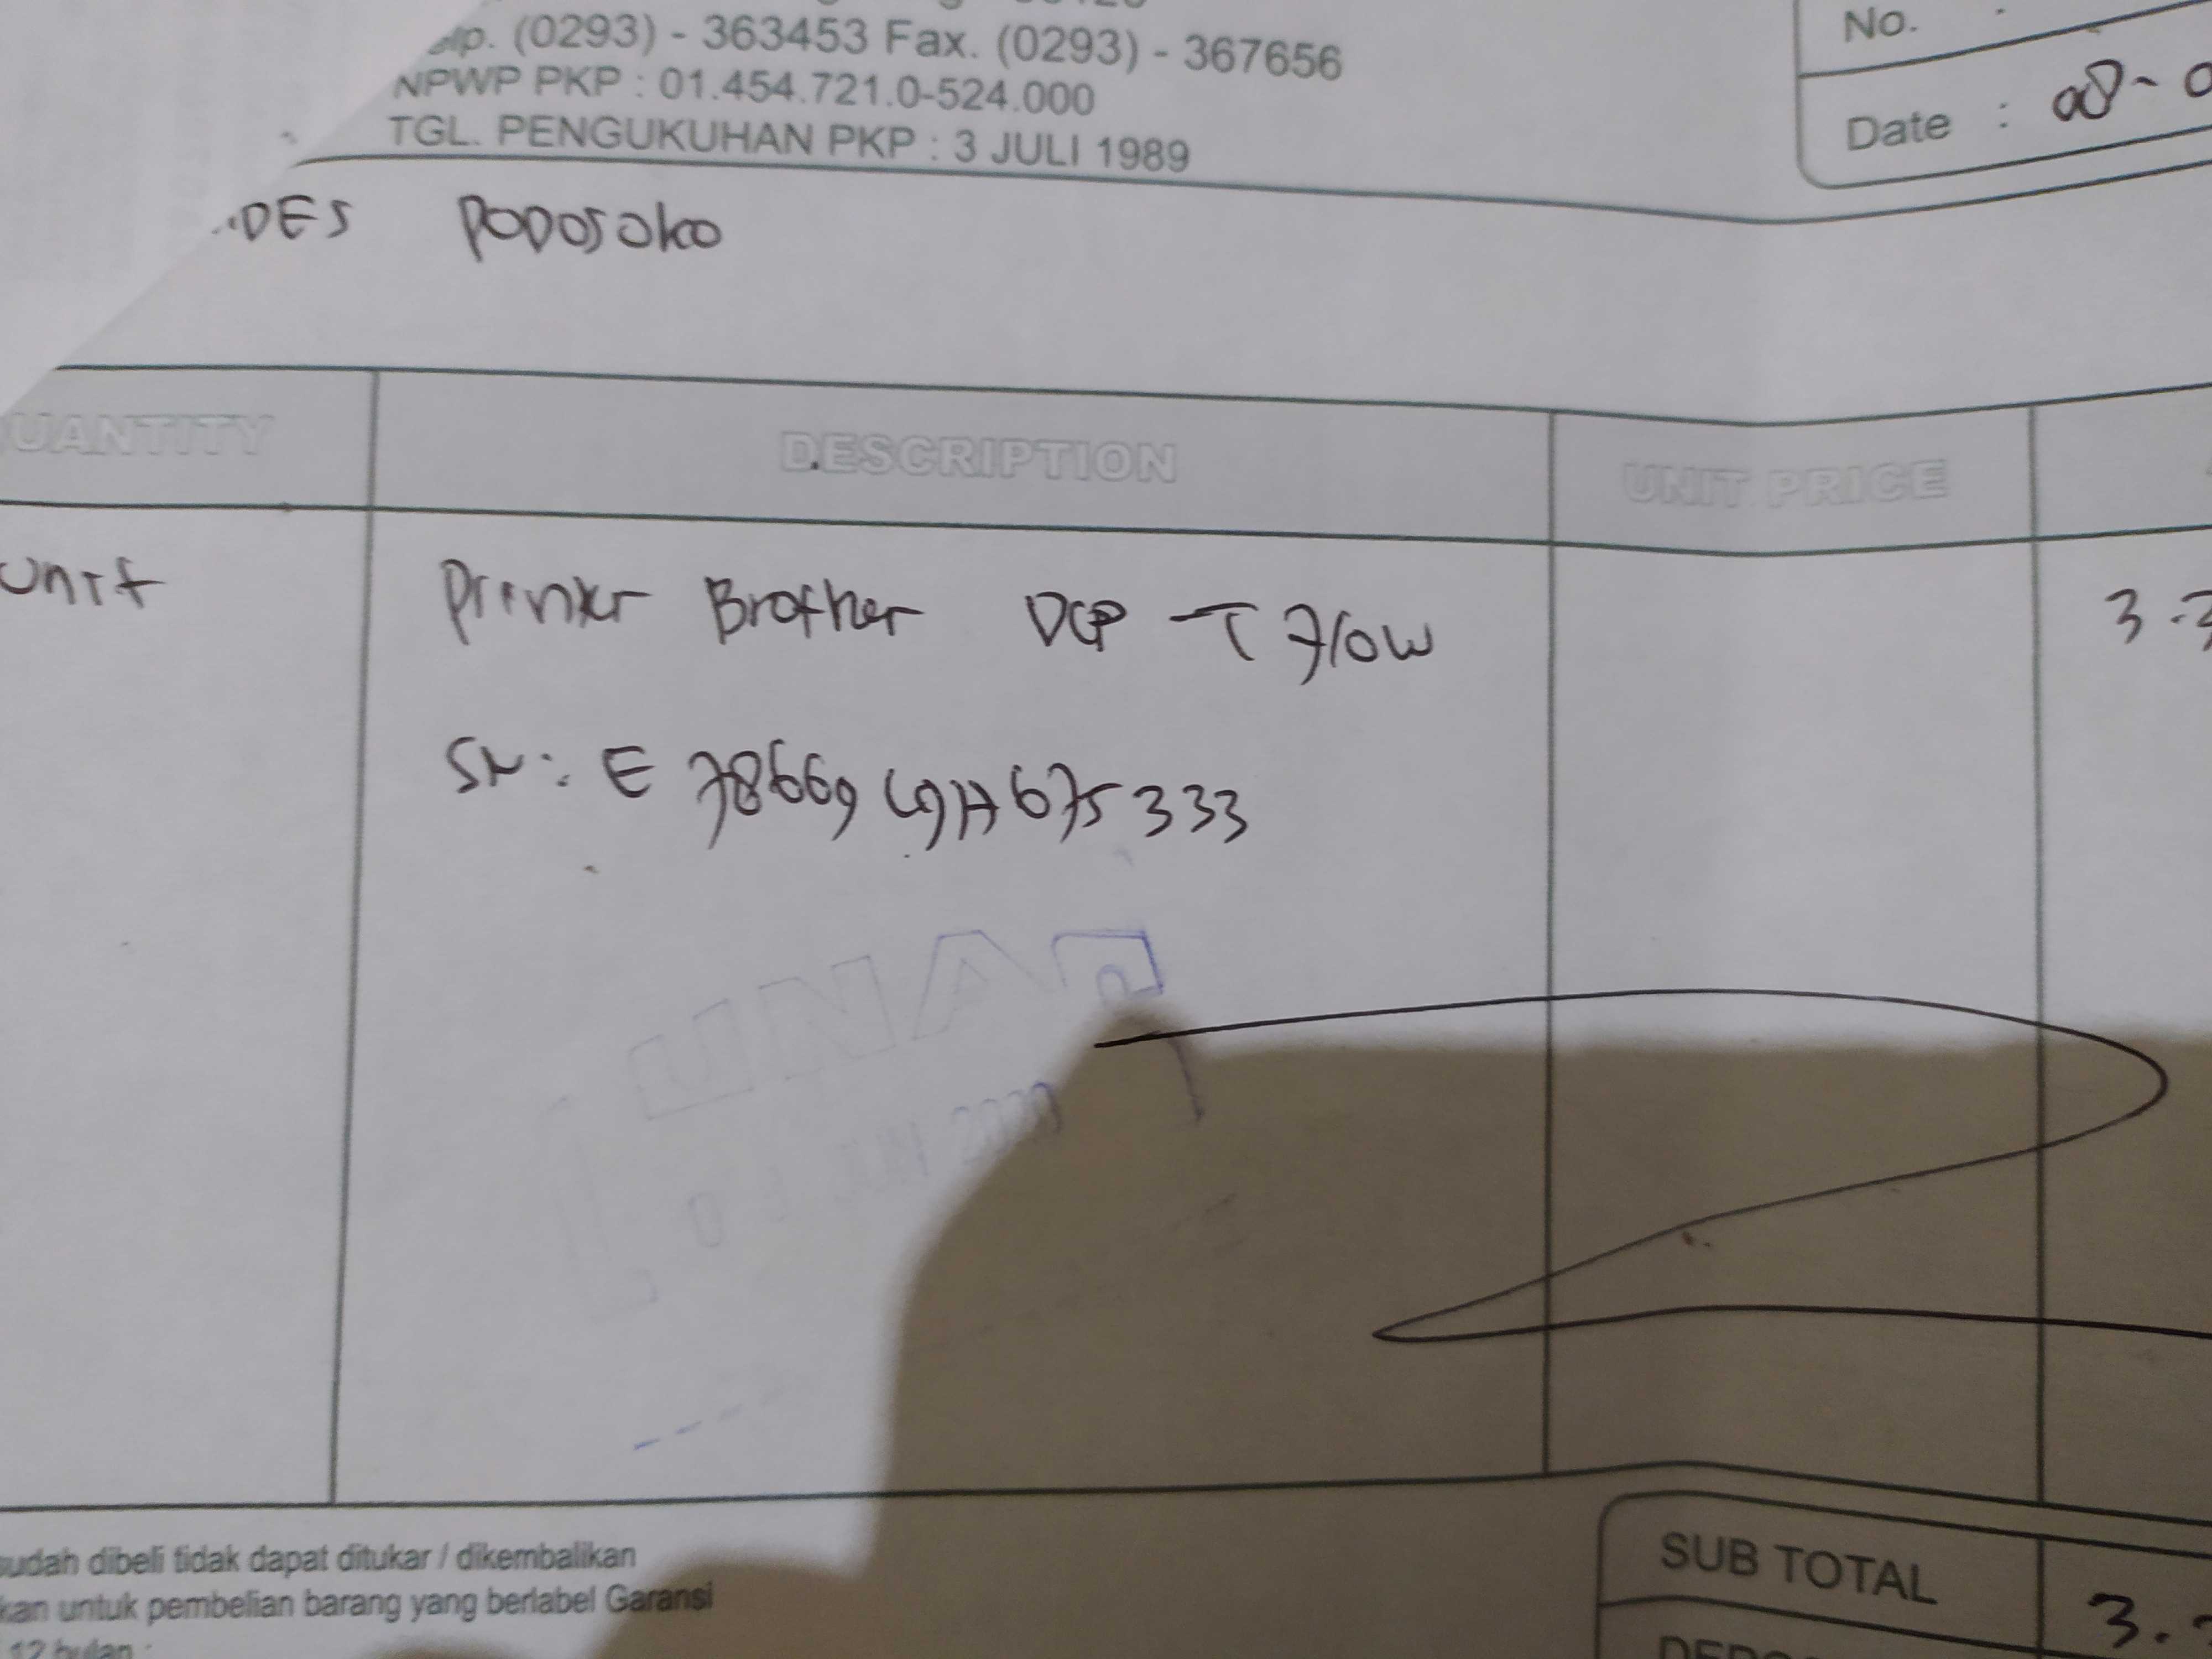 (0293) - 363453 Fax. (0293) - 367656
NPWP PKP : 01.454.721.0-524.000
TGL. PENGUKUHAN PKP : 3 JULI 1989
No.
Date : 08-0
DES PODOSOKO
UANTITY DESCRIPTION UNIT PRICE
Unit Printer Brother DCP - T Flow 3.3
SN : E 78669 C9H675333
UNA
JUN
udah dibeli tidak dapat ditukar / dikembalikan
kan untuk pembelian barang yang berlabel Garansi
12 bulan :
SUB TOTAL 3.